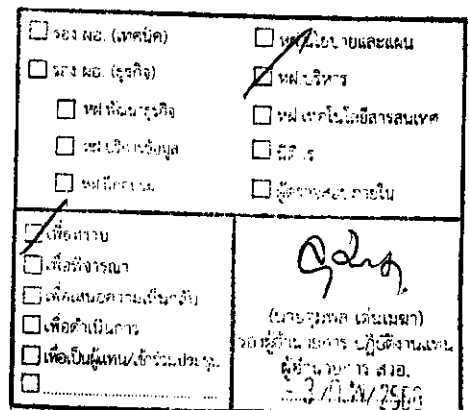 รอง ผอ. (เทคนิค)
รอง ผอ. (ธุรกิจ)
หฝ.พัฒนาธุรกิจ
หฝ.บริการข้อมูล
หฝ.
หฝ.นโยบายและแผน
หฝ.บริหาร
หฝ.เทคโนโลยีสารสนเทศ
นิติกร
ผู้ตรวจสอบภายใน
เพื่อทราบ
เพื่อพิจารณา
เพื่อเสนอความเห็นกลับ
เพื่อดำเนินการ
เพื่อเป็นผู้แทน/เข้าร่วมประชุม
(นายจุมพล เด่นเมฆา)
รองผู้อำนวยการ ปฏิบัติงานแทน
ผู้อำนวยการ สวอ.